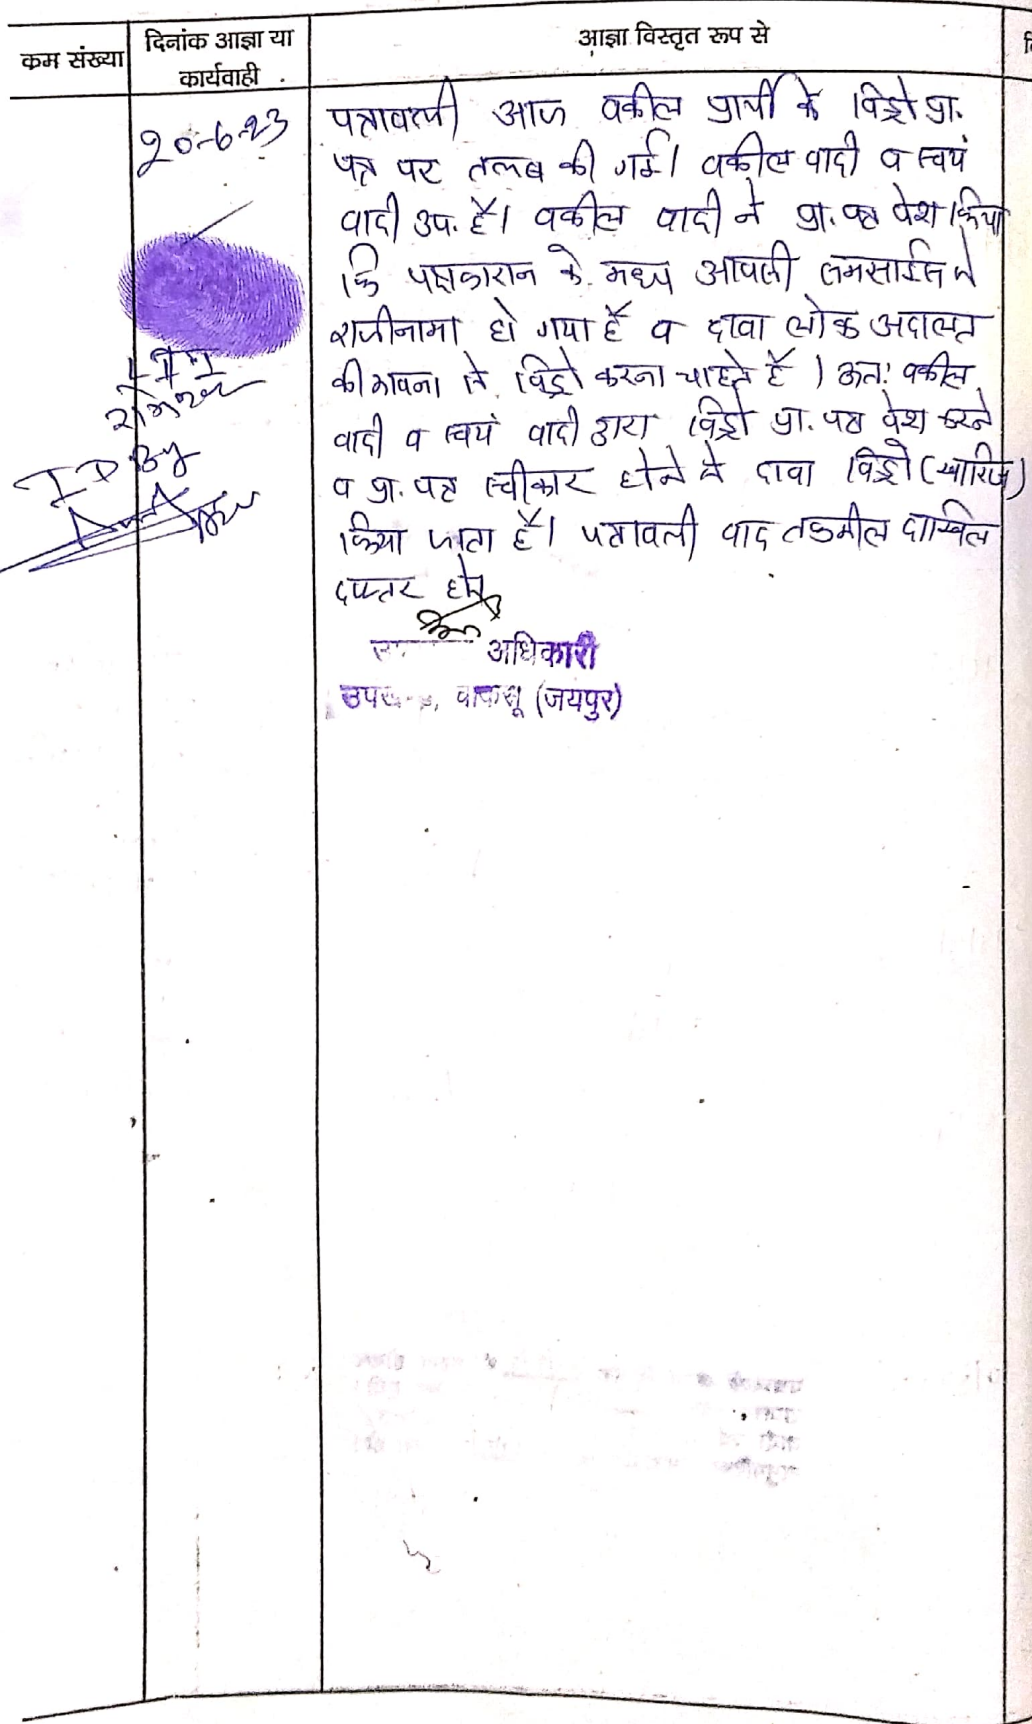 क्रम संख्या
दिनांक आज्ञा या
कार्यवाही
आज्ञा विस्तृत रूप से
20-6-23
पत्रावली आज वकील प्रार्थी के विड्रो प्रा.
पत्र पर तलब की गई। वकील वादी व स्वयं
वादी उप. है। वकील वादी ने प्रा. पत्र पेश किया
कि पक्षकारान के मध्य आपसी समझाईस से
राजीनामा हो गया है व दावा लोक अदालत
की भावना से विड्रो करना चाहते है। अत: वकील
वादी व स्वयं वादी द्वारा विड्रो प्रा. पत्र पेश करने
व प्रा. पत्र स्वीकार होने से दावा विड्रो (खारिज)
किया जाता है। पत्रावली बाद तकमील दाखिल
दफ्तर हो
I D By
अधिकारी
चाकसू (जयपुर)